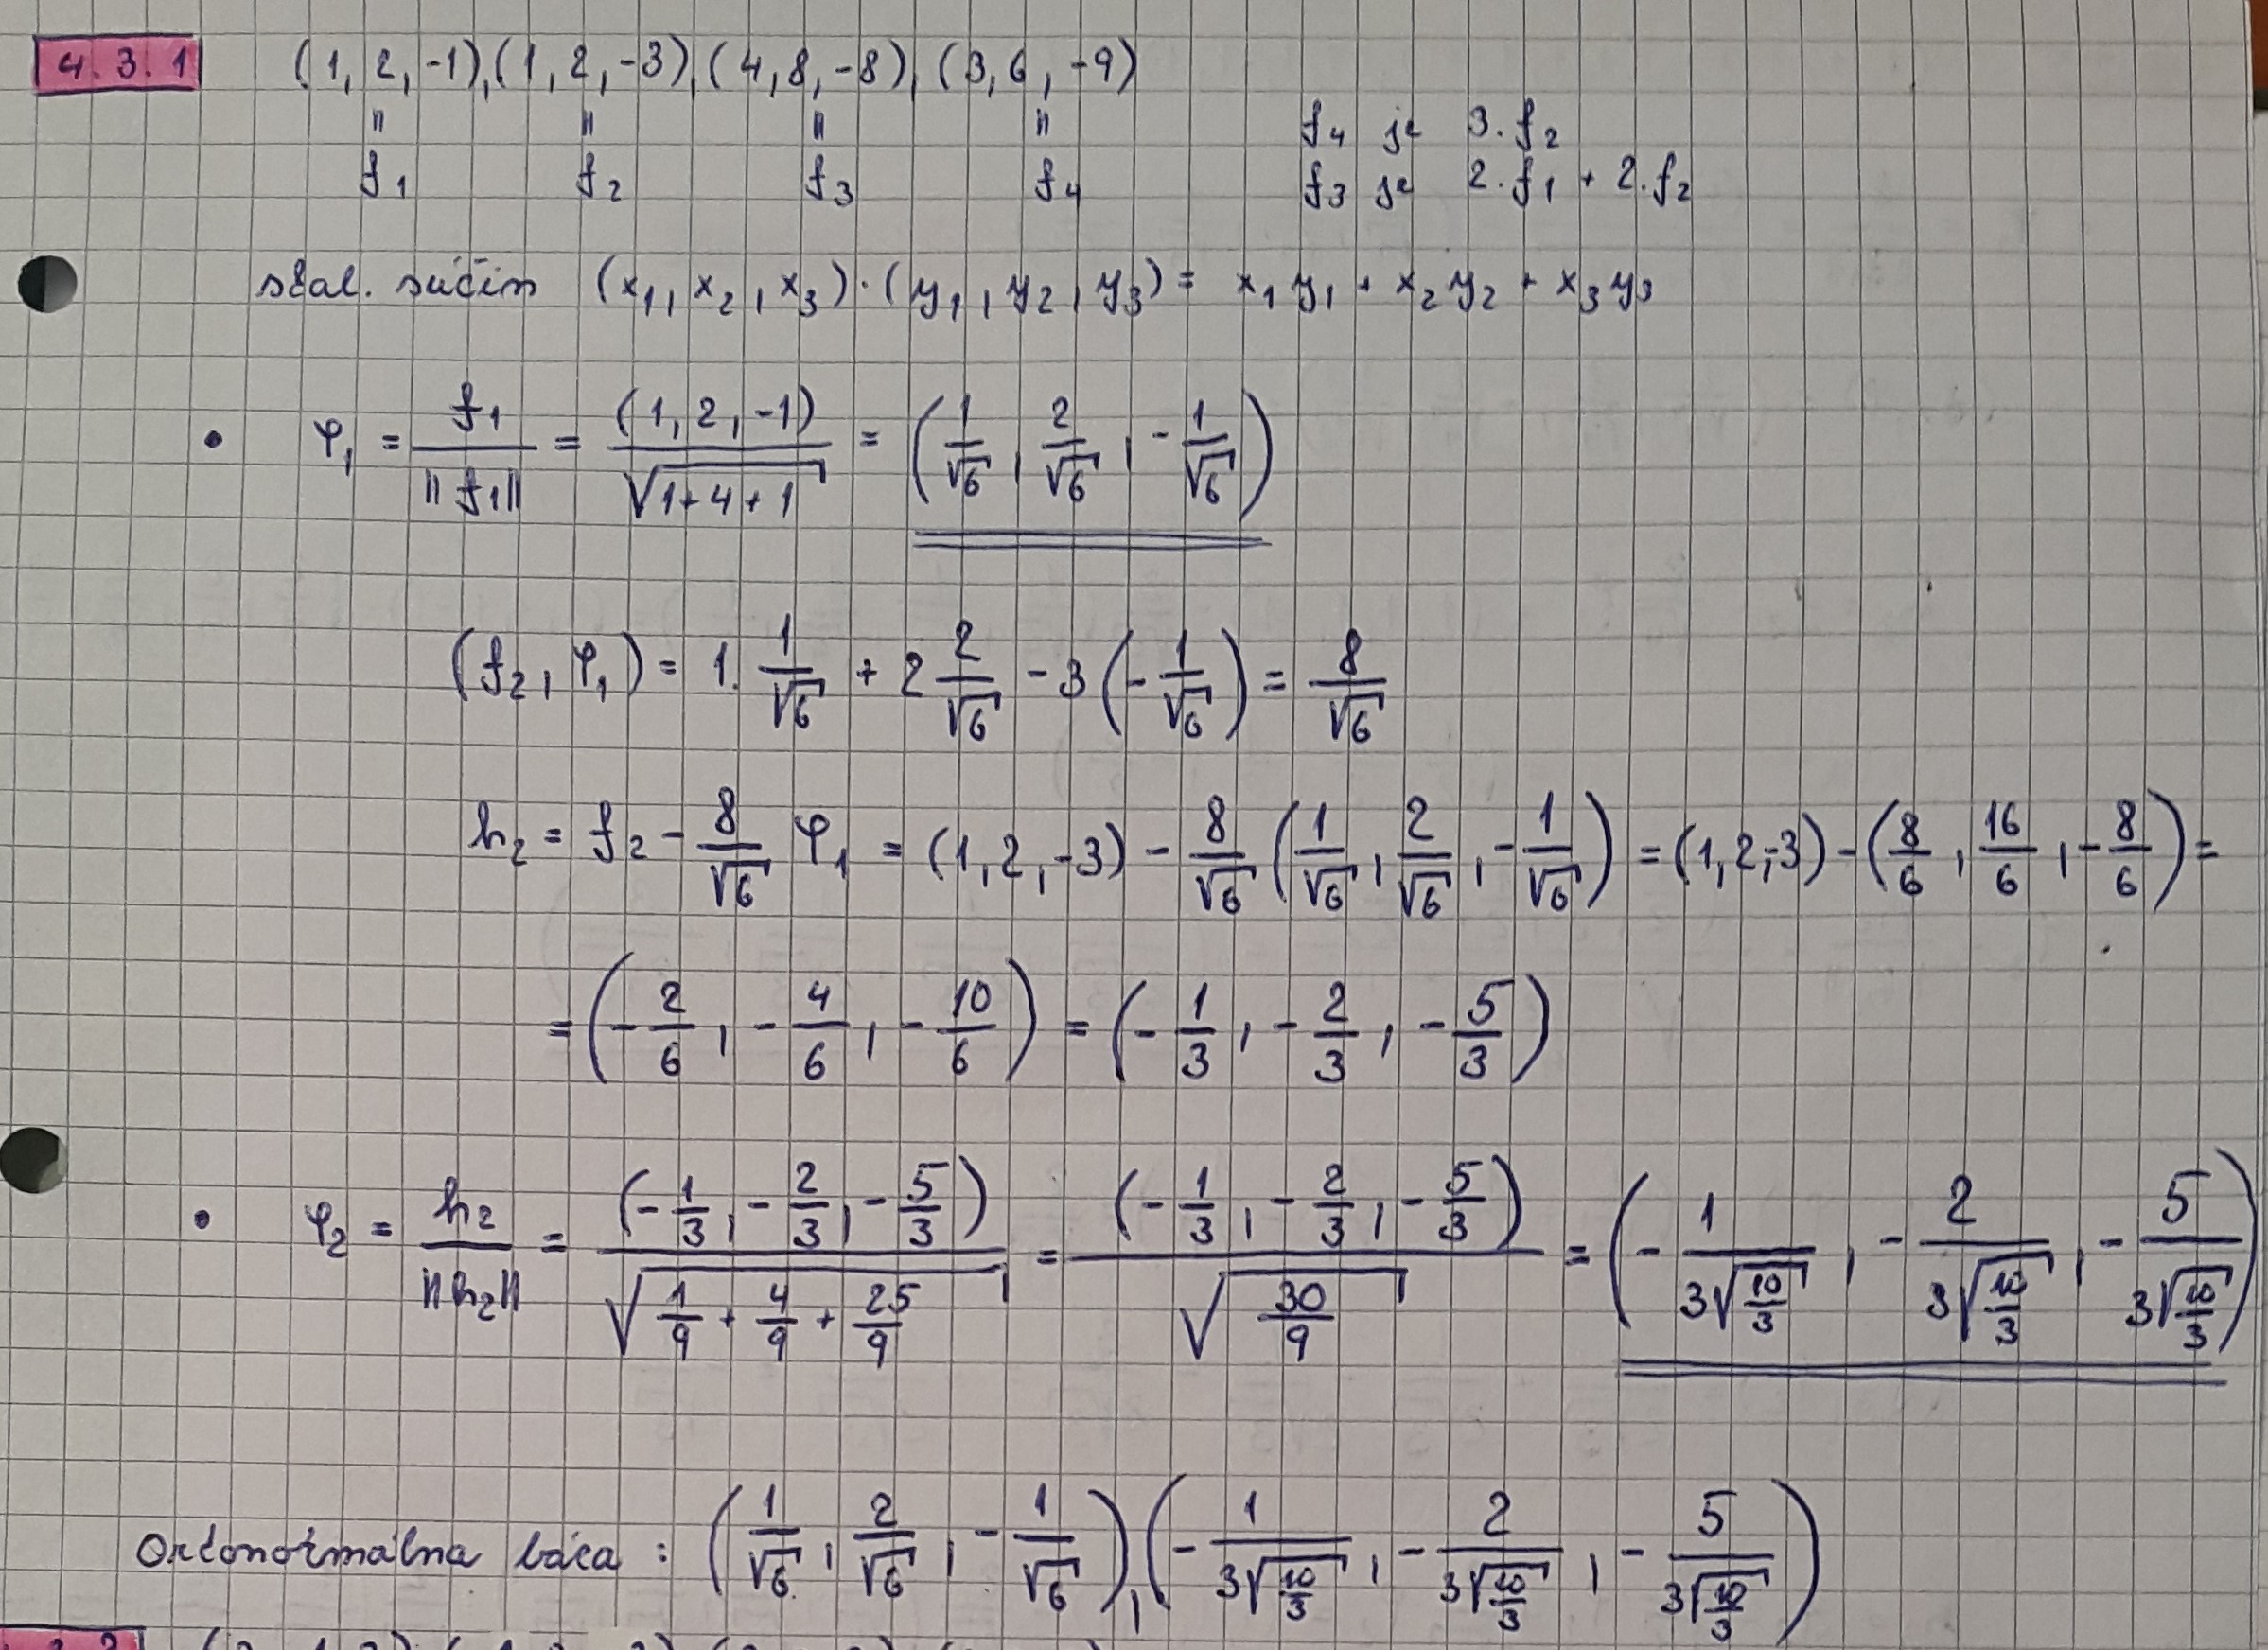 4.3.1 (1, 2, -1), (1, 2, -3), (4, 8, -8), (3, 6, -9)
= = = =
f₁ f₂ f₃ f₄
f₄ je 3.f₂
f₃ je 2.f₁ + 2.f₂
skal. súčin (x₁, x₂, x₃)·(y₁, y₂, y₃) = x₁y₁ + x₂y₂ + x₃y₃
• φ₁ = f₁/||f₁|| = (1, 2, -1)/√(1+4+1) = (1/√6, 2/√6, -1/√6)
(f₂, φ₁) = 1.1/√6 + 2 2/√6 - 3(-1/√6) = 8/√6
h₂ = f₂ - 8/√6 φ₁ = (1, 2, -3) - 8/√6 (1/√6, 2/√6, -1/√6) = (1, 2, -3) - (8/6, 16/6, -8/6) =
= (-2/6, -4/6, -10/6) = (-1/3, -2/3, -5/3)
• φ₂ = h₂/||h₂|| = (-1/3, -2/3, -5/3)/√(1/9 + 4/9 + 25/9) = (-1/3, -2/3, -5/3)/√(30/9) = (-1/(3√(10/3)), -2/(3√(10/3)), -5/(3√(10/3)))
Ortonormálna báza : (1/√6, 2/√6, -1/√6), (-1/(3√(10/3)), -2/(3√(10/3)), -5/(3√(10/3)))